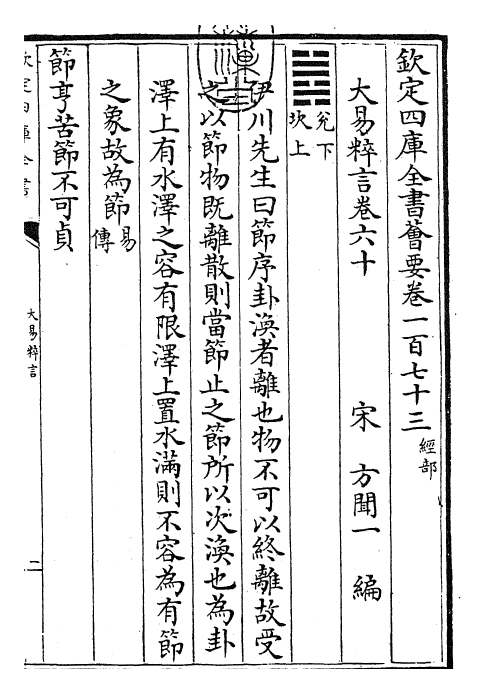 欽定四庫全書薈要卷一百七十三 經部
大易粹言卷六十 宋 方聞一 編
兌下
坎上
伊川先生曰節序卦渙者離也物不可以終離故受
之以節物既離散則當節止之節所以次渙也為卦
澤上有水澤之容有限澤上置水滿則不容為有節
之象故為節易傳
節亨苦節不可貞
欽定四庫全書
大易粹言